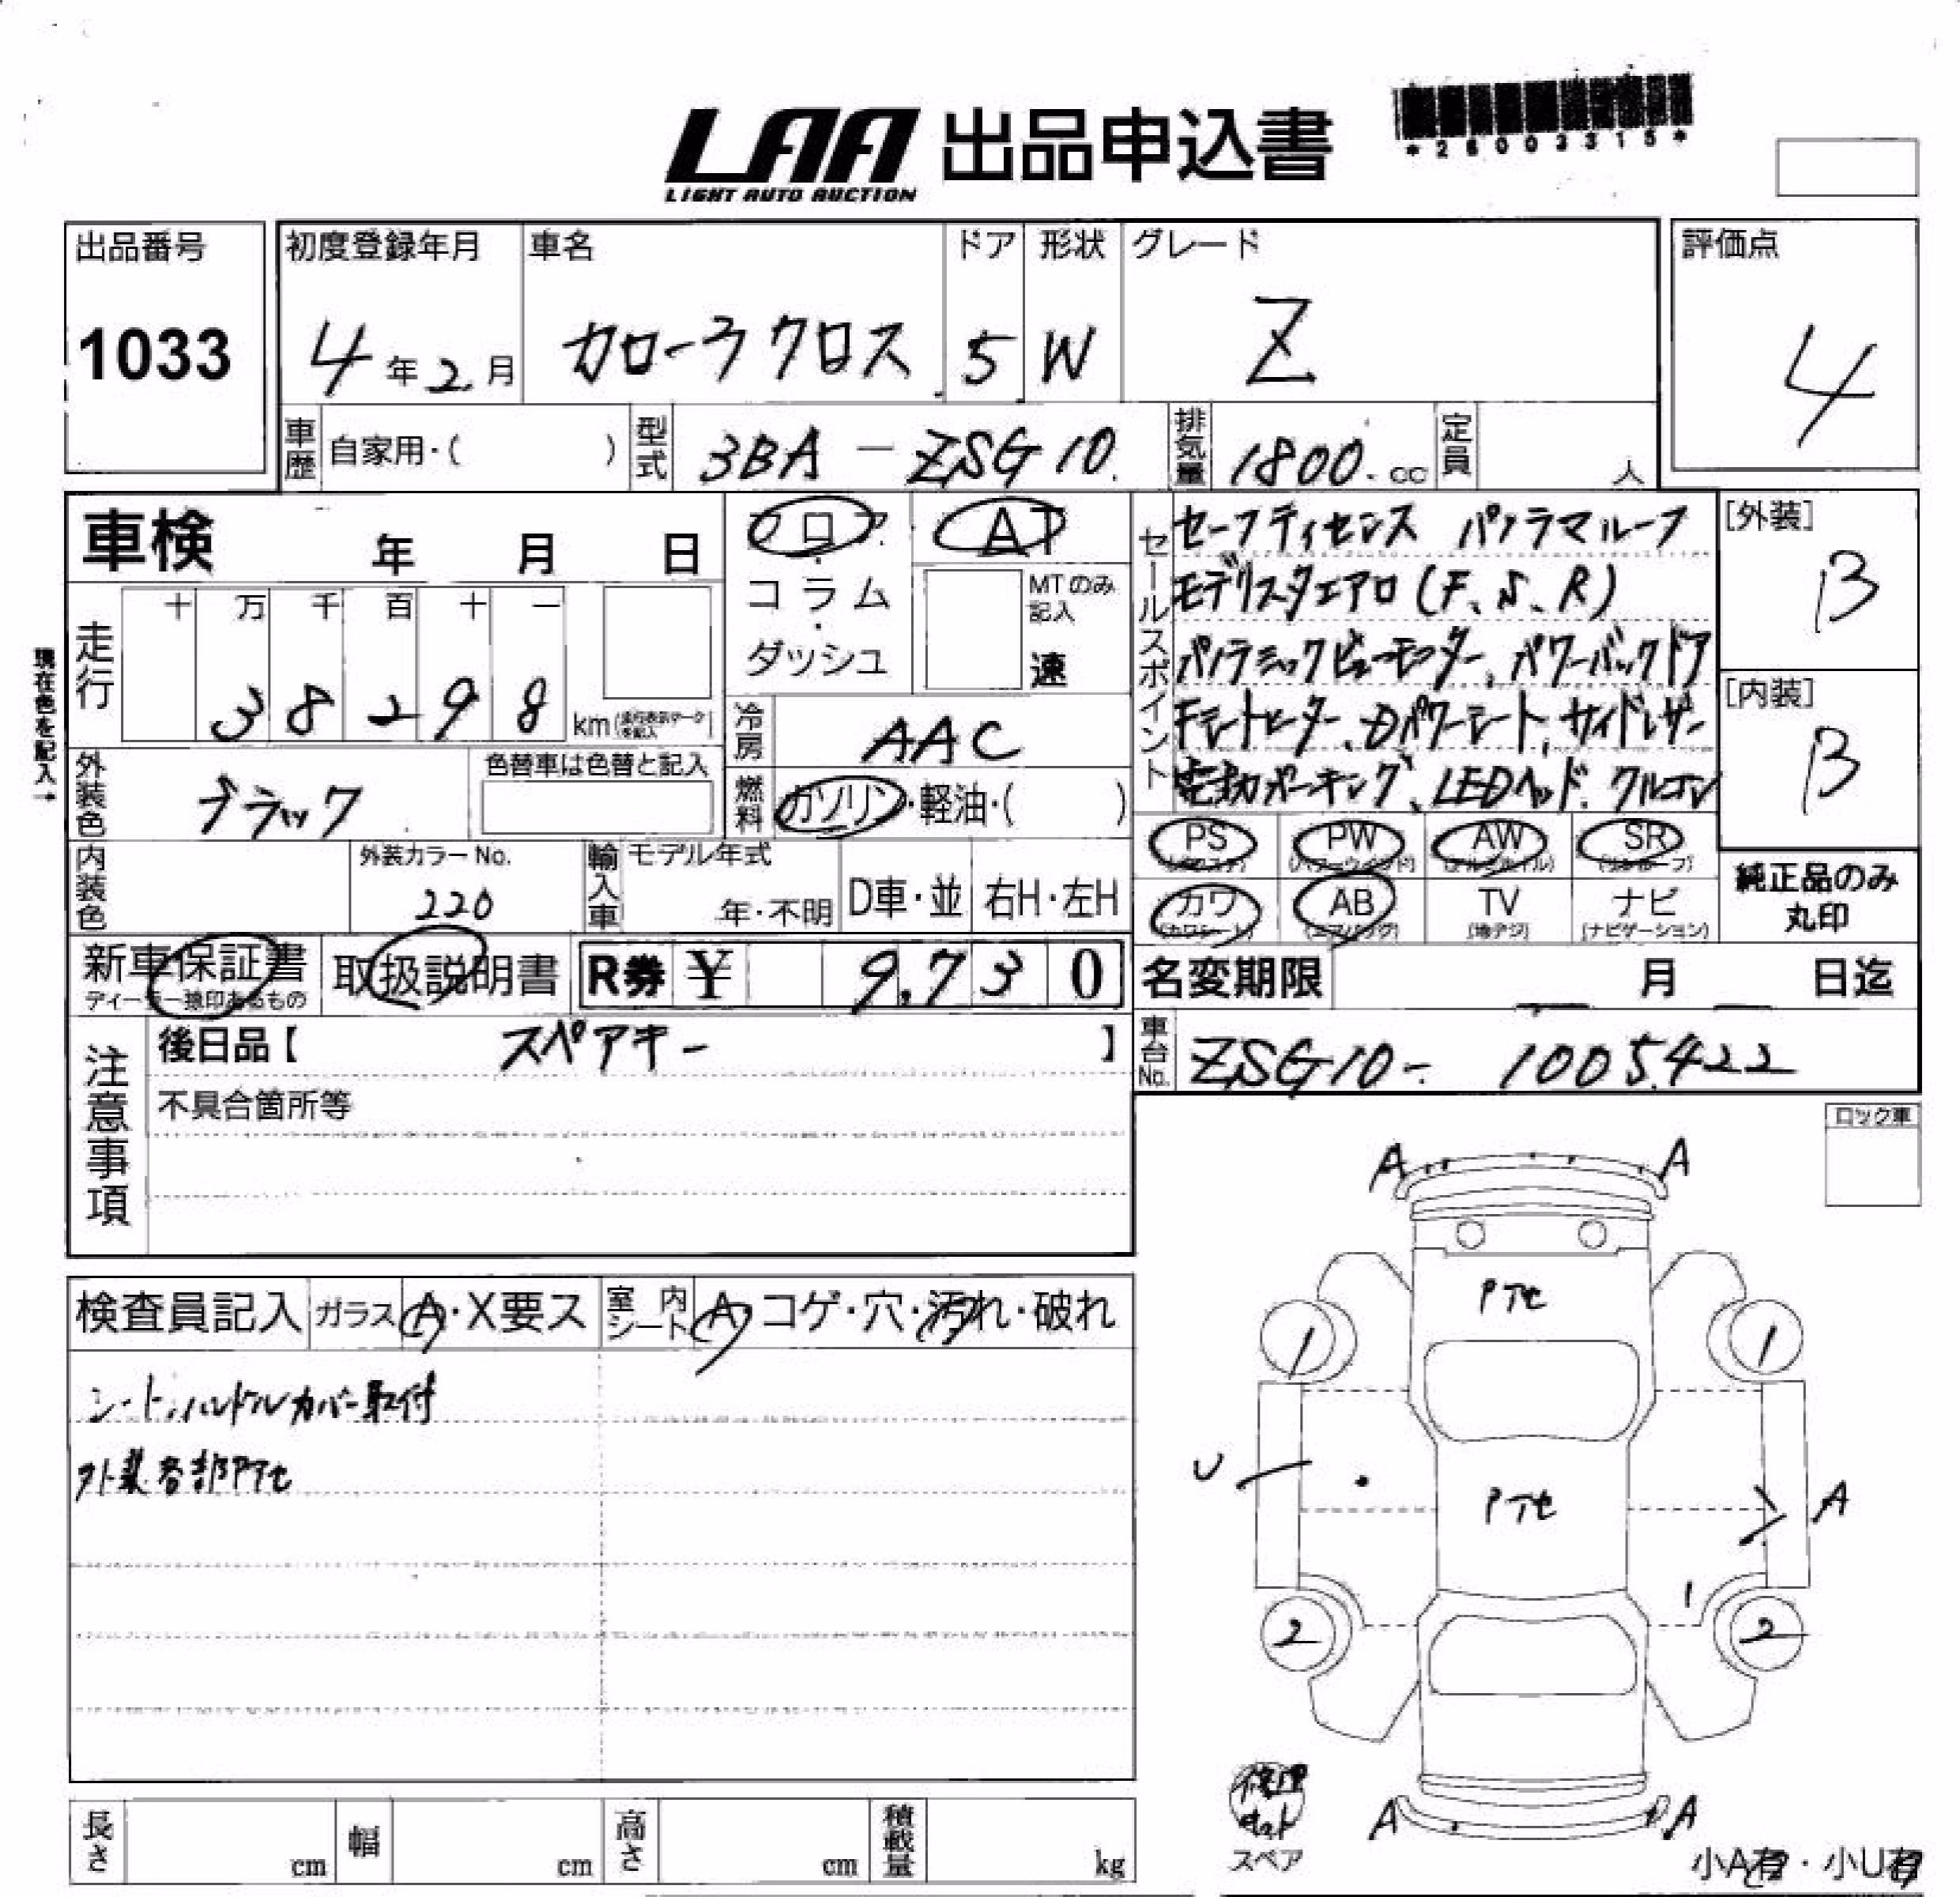 LAA 出品申込書
LIGHT AUTO AUCTION
*26003315*
出品番号
1033
初度登録年月
4年2月
車名
カローラクロス
ドア
5
形状
W
グレード
Z
評価点
4
車歴 自家用・( )
型式 3BA - ZSG10.
排気量 1800.cc
定員 人
車検 年 月 日
現在色を記入→
走行
十 万 千 百 十 一
3 8 2 9 8 km
フロア
コラム
ダッシュ
AT
MTのみ記入
速
冷房 AAC
燃料 ガソリン・軽油・( )
外装色 ブラック
色替車は色替と記入
内装色
外装カラーNo.
220
輸入車 モデル年式
年・不明
D車・並
右H・左H
セールスポイント
セーフティセンス パノラマルーフ
モデリスタエアロ(F、S、R)
パノラミックビューモニター、パワーバックドア
Fシートヒーター、Dパワーシート、サイドレザー
電動パーキング、LEDヘッド、クルコン
[外装]
B
[内装]
B
PS PW AW SR
(パワステ) (パワーウィンド) (アルミホイル) (サンルーフ)
カワ AB TV ナビ
(カワシート) (エアバッグ) (地デジ) (ナビゲーション)
純正品のみ
丸印
新車保証書
ディーラー捺印あるもの
取扱説明書
R券 ¥ 9,730
名変期限 月 日迄
車台No. ZSG10- 1005422
注意事項
後日品【 スペアキー 】
不具合箇所等
ロック車
検査員記入 ガラス A・X要ス 室内シート A・コゲ・穴・汚れ・破れ
シート、ハンドルカバー取付
外装各部PTセ
A A
PTセ
1 1
U
PTセ
A
1
2 2
A A
修理
キット
スペア
小A有・小U有
長さ cm 幅 cm 高さ cm 積載量 kg